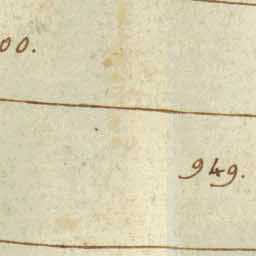 00.
949.